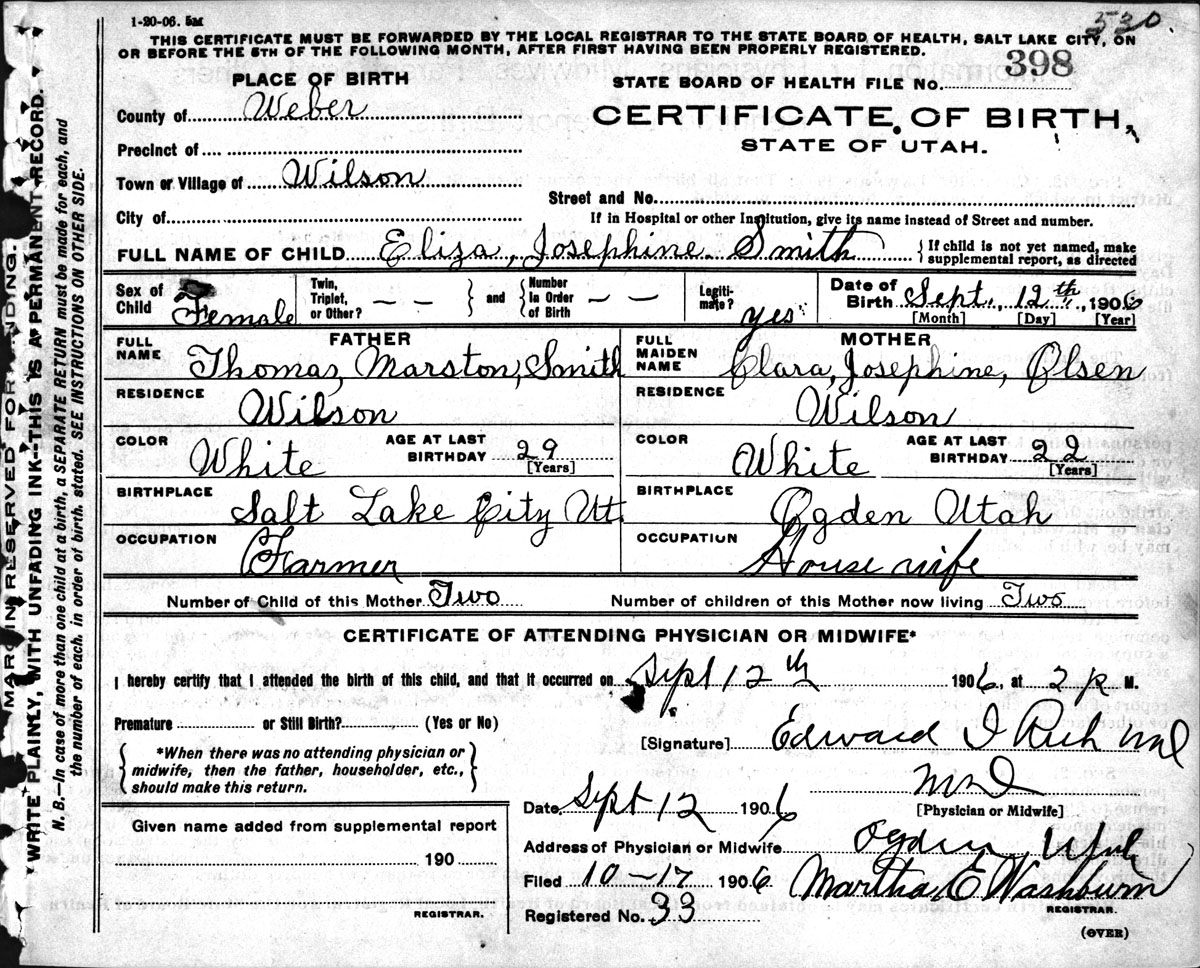 1-20-06. 5M
530
THIS CERTIFICATE MUST BE FORWARDED BY THE LOCAL REGISTRAR TO THE STATE BOARD OF HEALTH, SALT LAKE CITY, ON
OR BEFORE THE 5TH OF THE FOLLOWING MONTH, AFTER FIRST HAVING BEEN PROPERLY REGISTERED.
PLACE OF BIRTH
STATE BOARD OF HEALTH FILE No. 398
County of Weber
CERTIFICATE OF BIRTH,
Precinct of
STATE OF UTAH.
Town or Village of Wilson
Street and No.
City of
If in Hospital or other Institution, give its name instead of Street and number.
FULL NAME OF CHILD Eliza, Josephine Smith { If child is not yet named, make
supplemental report, as directed
Sex of Child Female
Twin, Triplet, or Other? – – } and { Number In Order of Birth – –
Legiti-mate? yes
Date of Birth Sept. 12th, 1906
[Month] [Day] [Year]
FATHER
MOTHER
FULL NAME Thomas, Marston, Smith
FULL MAIDEN NAME Clara, Josephine, Olsen
RESIDENCE Wilson
RESIDENCE Wilson
COLOR White AGE AT LAST BIRTHDAY 29 [Years]
COLOR White AGE AT LAST BIRTHDAY 22 [Years]
BIRTHPLACE Salt Lake City Ut.
BIRTHPLACE Ogden Utah
OCCUPATION Farmer
OCCUPATION House wife
Number of Child of this Mother Two
Number of children of this Mother now living Two
CERTIFICATE OF ATTENDING PHYSICIAN OR MIDWIFE*
I hereby certify that I attended the birth of this child, and that it occurred on Sept 12th 1906, at 2 P M.
Premature or Still Birth? (Yes or No)
[Signature] Edward I Rich
{ *When there was no attending physician or
midwife, then the father, householder, etc.,
should make this return. }
MD
[Physician or Midwife]
Date Sept 12 1906
Given name added from supplemental report
Address of Physician or Midwife Ogden Utah
190
Filed 10-17 1906 Martha E Washburn
REGISTRAR.
REGISTRAR.
Registered No. 33
(OVER)
MARGIN RESERVED FOR BINDING.
WRITE PLAINLY, WITH UNFADING INK--THIS IS A PERMANENT RECORD.
N. B.—In case of more than one child at a birth, a SEPARATE RETURN must be made for each, and
the number of each, in order of birth, stated. SEE INSTRUCTIONS ON OTHER SIDE.